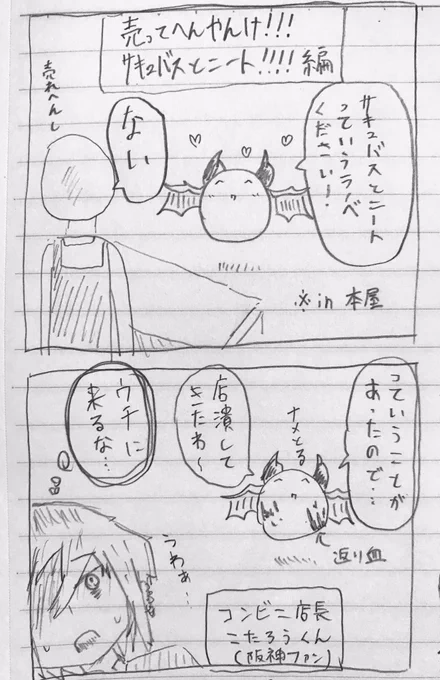 売ってへんやんけ!!!
サキュバスとニート!!!!編
サキュバスとニート
っていうラノベ
ください!
ない
売れへんし
※in 本屋
っていうことが
あったので…
店潰して
きたわ〜
ナメとる
返り血
ウチに
来るな…
うわぁ…
コンビニ店長
こたろうくん
(阪神ファン)